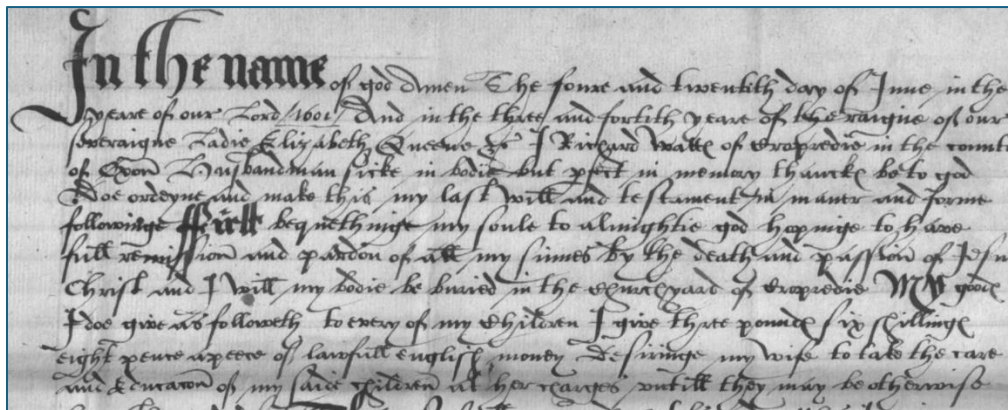 In the name of god Amen The foure and twentith day of June in the
yeare of our Lord /1601/ And in the three and fortith yeare of the raigne of our
soveraigne Ladie Elizabeth Queene &c I Richard Watts of Cropredie in the countie
of Oxon Husbandman sicke in bodie but pfect in memory thanckes be to god
Doe ordeyne and make this my last will and testament in maner and forme
followinge ffirst bequethinge my soule to almightie god hopinge to have
full remission and pardon of all my sinnes by the death and passion of Jesu
Christ and I will my bodie be buried in the Churchyard of Cropredie My goodes
I doe give as followeth to every of my Children I give three poundes six shillinges
eight pence a peece of lawfull english money desiringe my wife to take the care
and educacon of my saide Children at her charges untill they may be otherwise